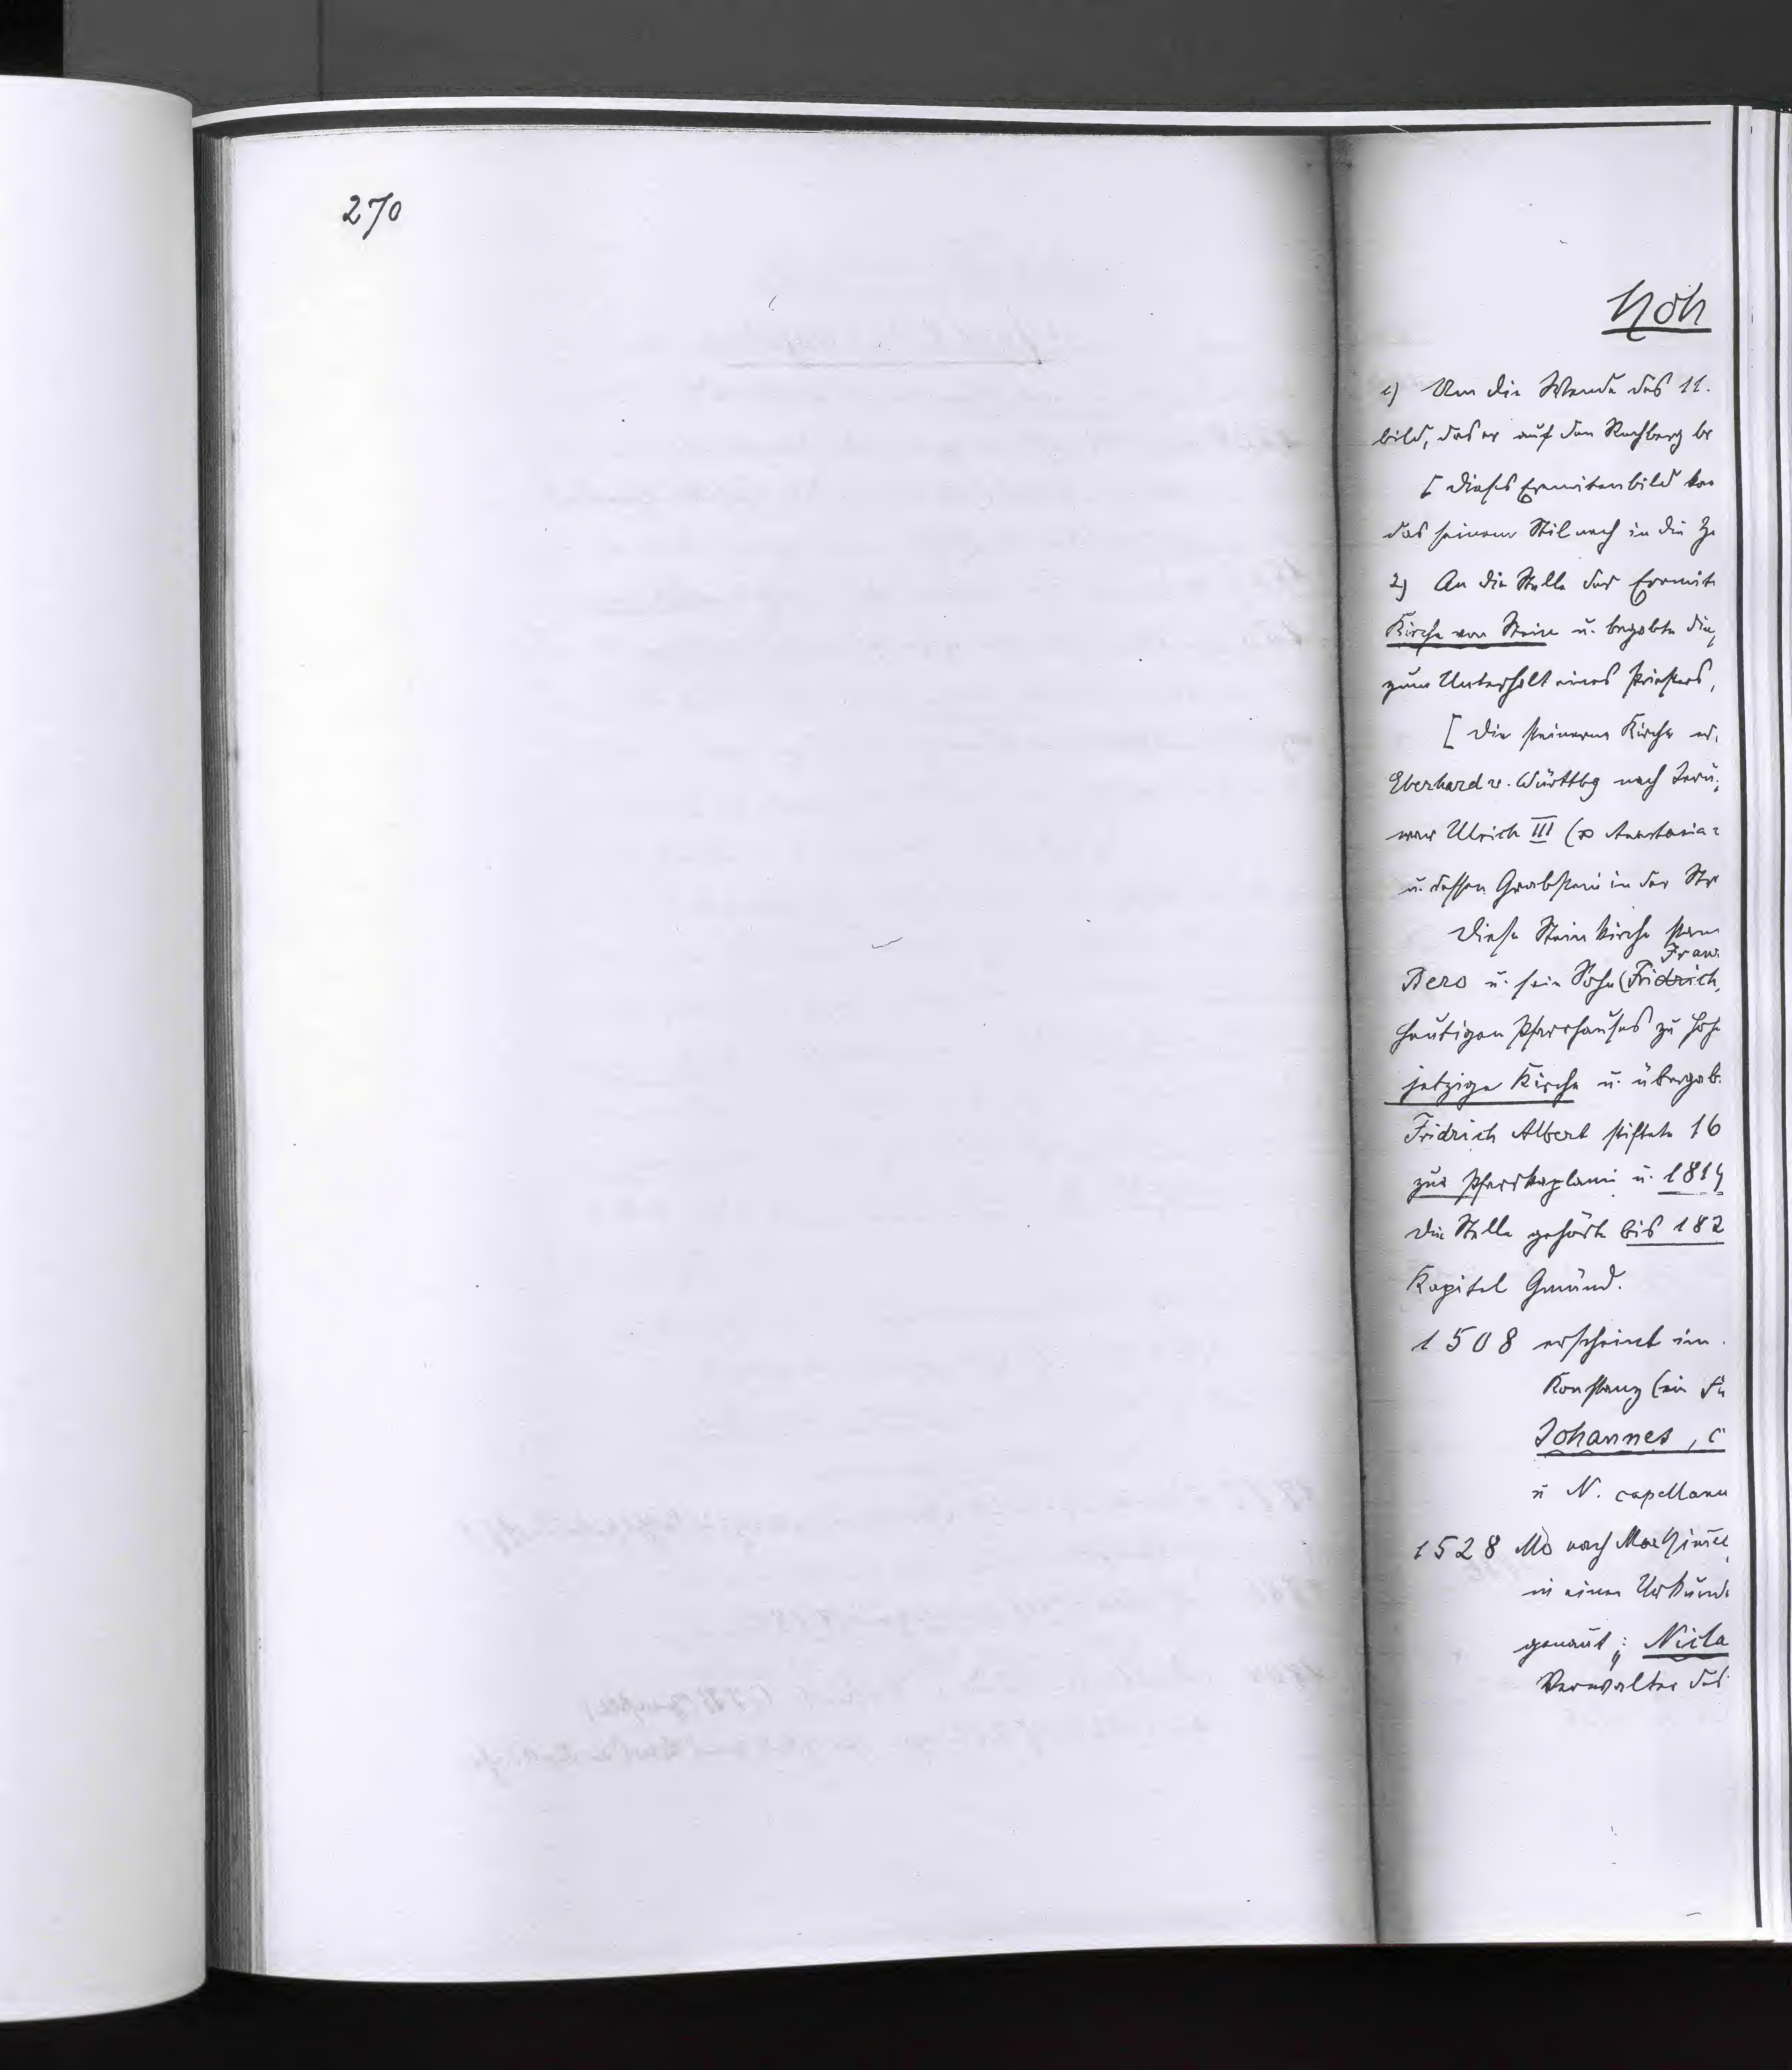 270
Höh
1) Um die Wende des 11.
bild, das er auf den Rechberg br
[ Dieses Eremitenbild kan
das seinem Stil nach in die Ze
2) An die Stelle der Eremit
Kirche von Stein u. begabte die
zum Unterhalt eines Priesters,
[ Die steinerne Kirche er.
Eberhard v. Württbg nach Jeru
war Ulrich III (∞ Anastasia
u. dessen Grabstein in der
Diese Steinkirche stan
Fran
Bero u. sein Sohn (Fridrich,
heutigen Pfarrhauses zu Hohe
jetzige Kirche u. übergab
Fridrich Albert stiftete 16
zur Pfarrkaplanei u. 1814
Die Stelle gehörte bis 182
Kapitel Gmünd.
1508 erscheint im
Konstanz (ein
Johannes, c
u N. capellanu
1528 Mo nach Martini
in einer Urkunde
genant; Nicla
Verwalter des